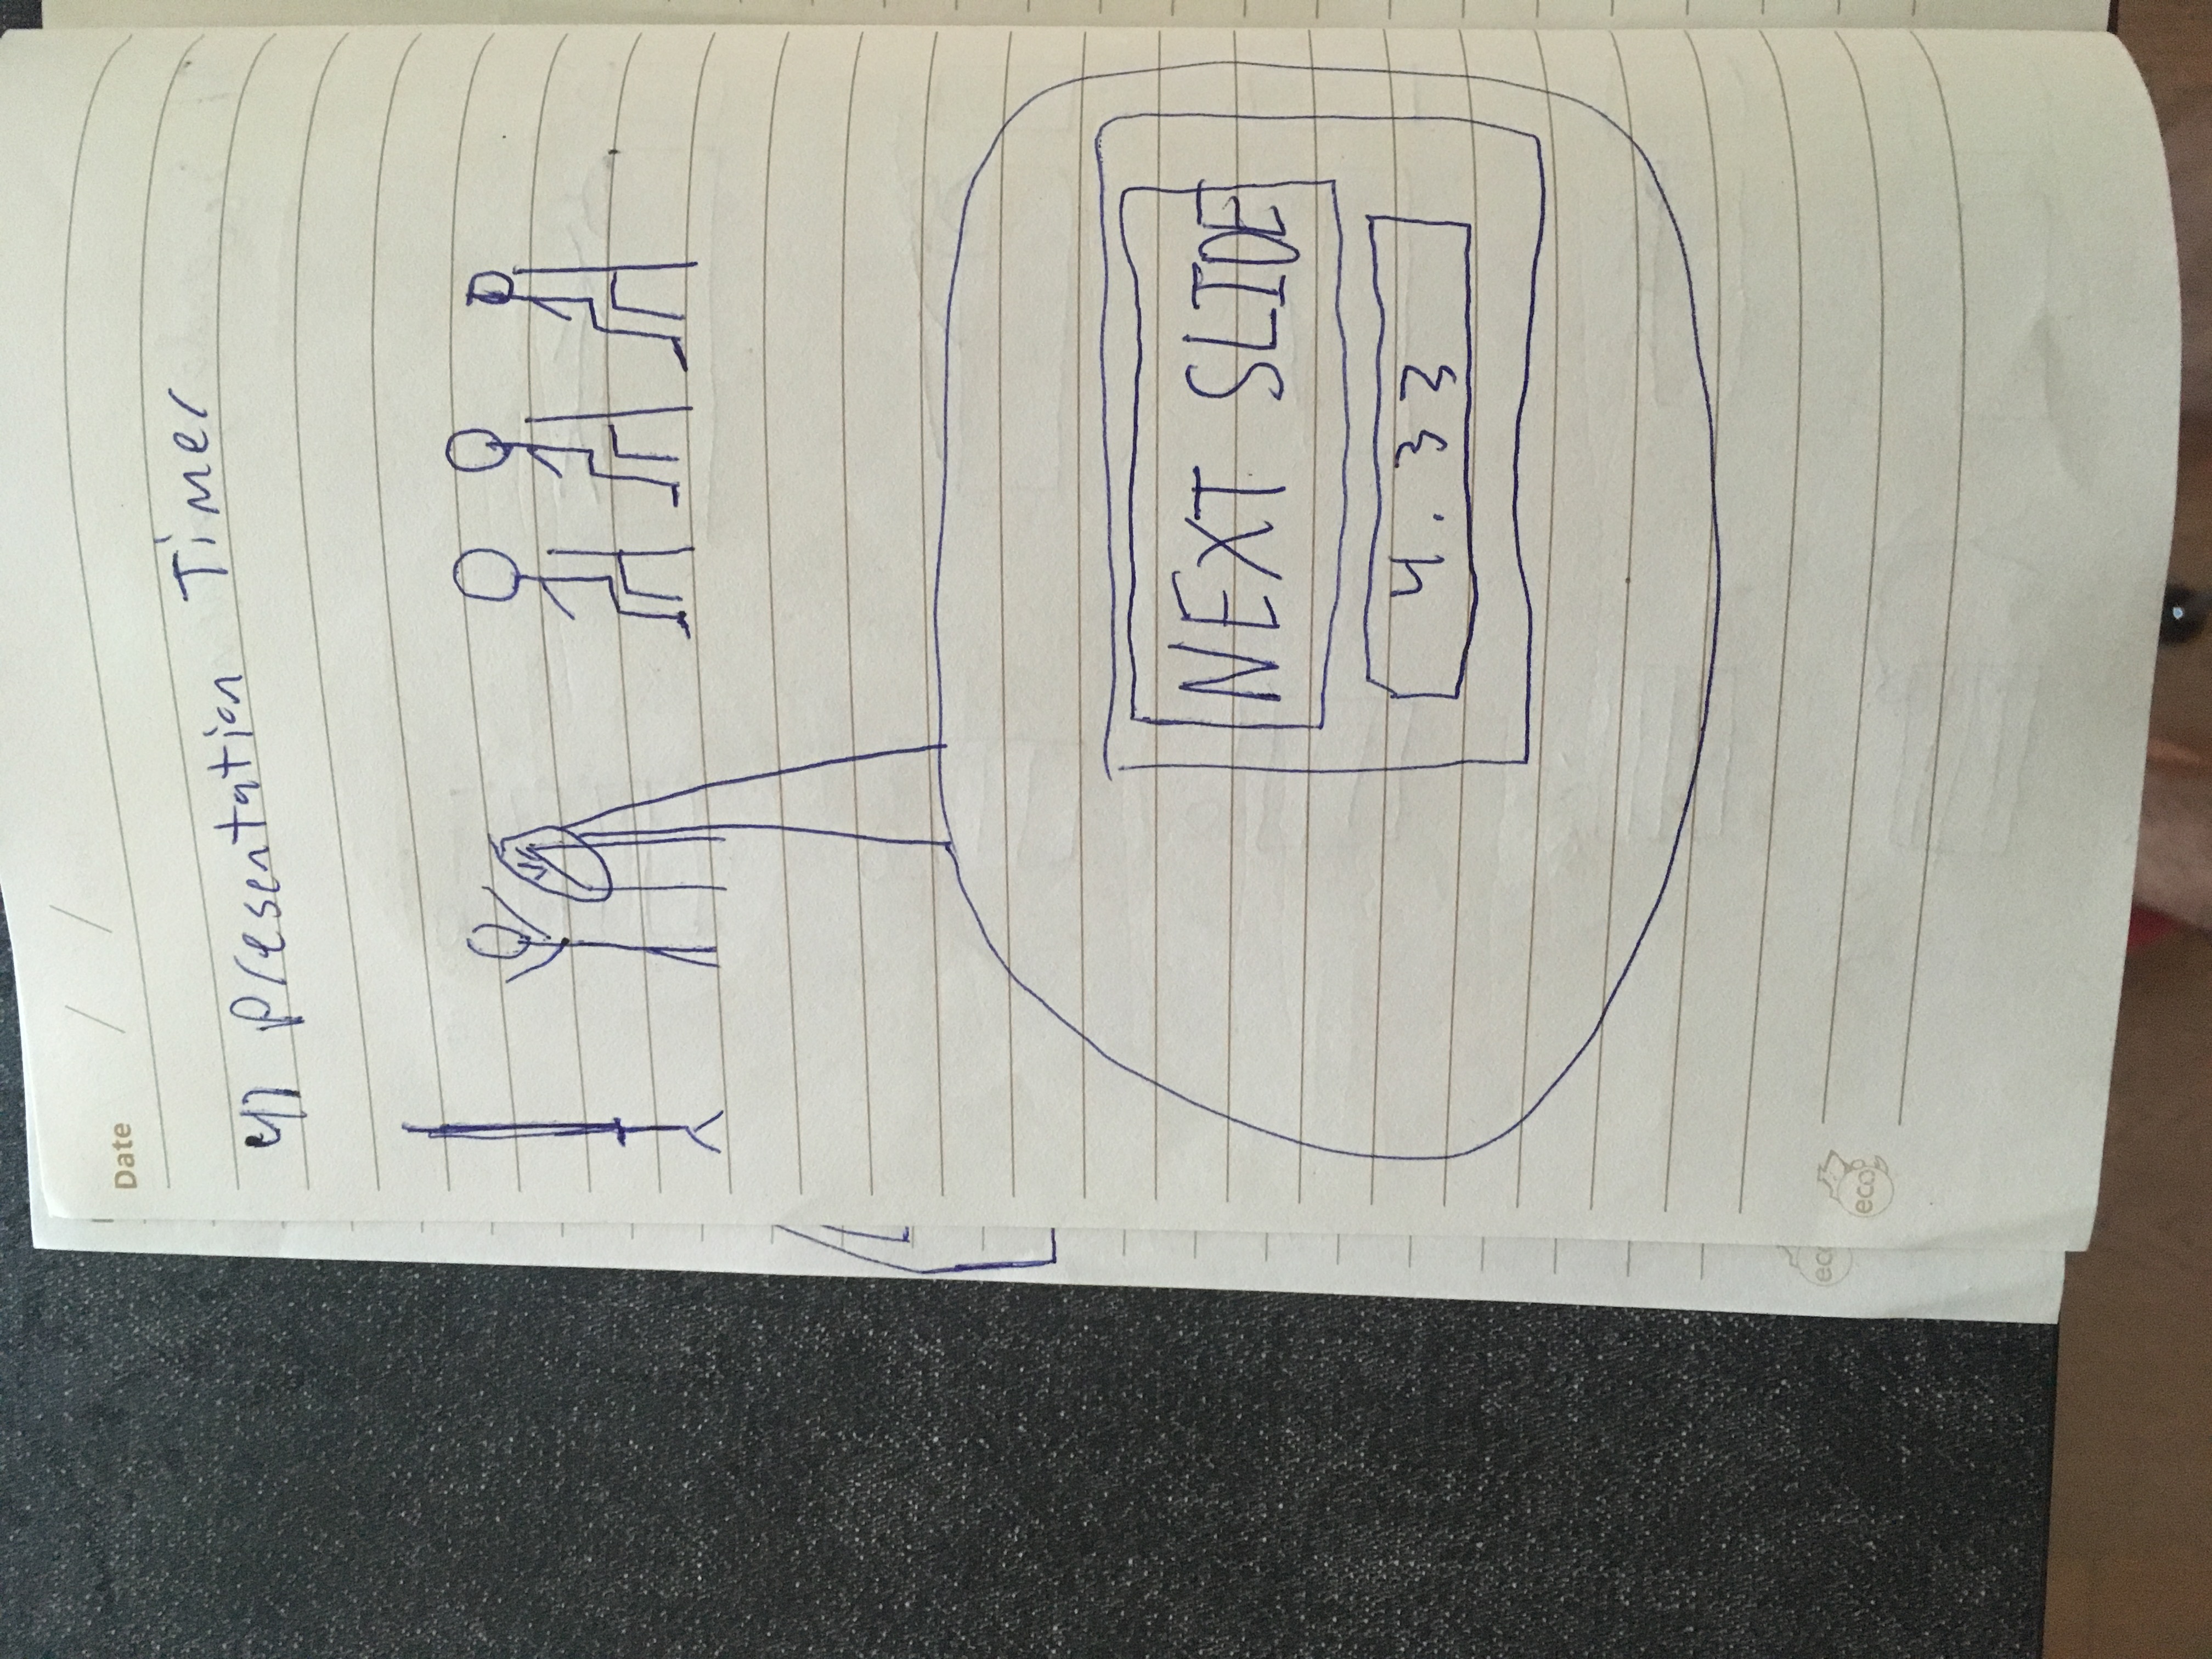 Date / /
4) Presentation Timer
NEXT SLIDE
4.33
eco
eco